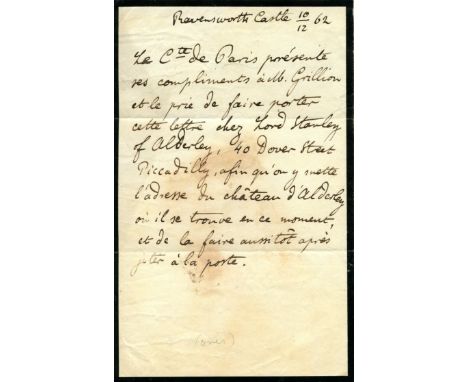 Ravensworth Castle 10/12 62
Le Cte de Paris présente
ses compliments à M. Grillion
et le prie de faire porter
cette lettre chez Lord Stanley
of Alderley, 40 Dover Street
Piccadilly, afin qu'on y mette
l'adresse du château d'Alderley
où il se trouve en ce moment,
et de la faire aussitôt après
jeter à la poste.
(over)